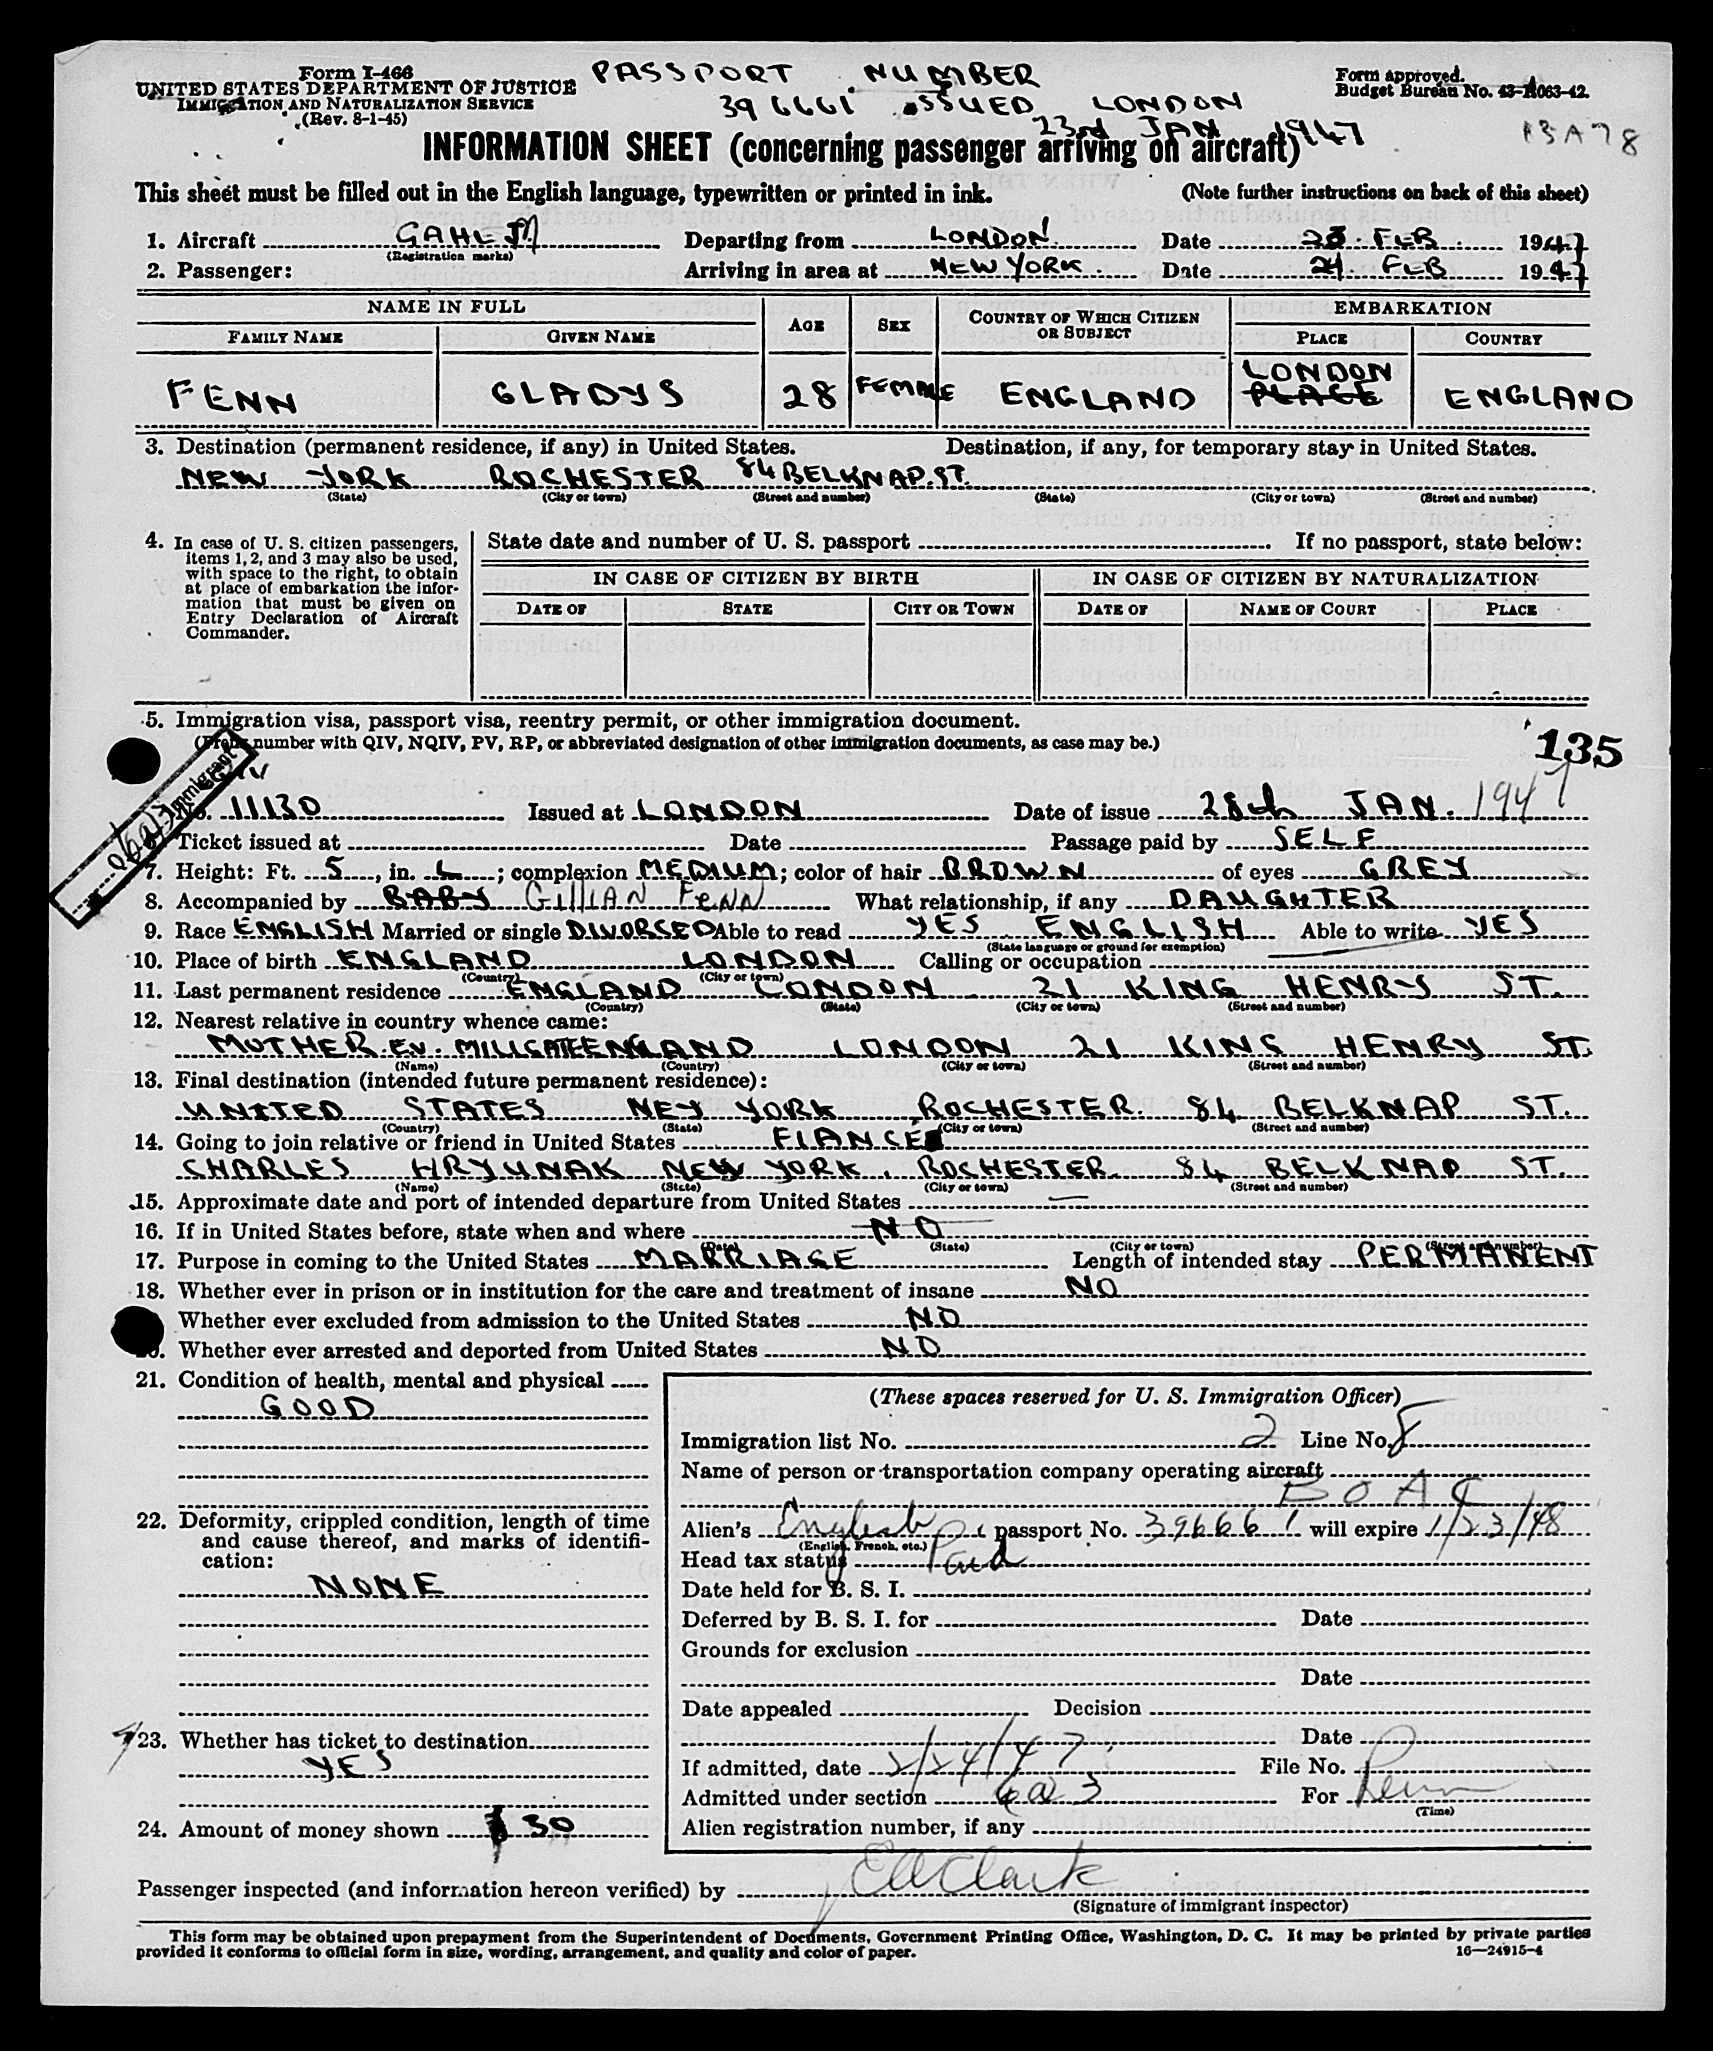 Form I-466
UNITED STATES DEPARTMENT OF JUSTICE
IMMIGRATION AND NATURALIZATION SERVICE
(Rev. 8-1-45)
PASSPORT NUMBER
396661 ISSUED LONDON
23rd JAN 1947
Form approved.
Budget Bureau No. 43-R063-42.
13A78
INFORMATION SHEET (concerning passenger arriving on aircraft)
This sheet must be filled out in the English language, typewritten or printed in ink. (Note further instructions on back of this sheet)
1. Aircraft GAHEM Departing from LONDON. Date 23. FEB. 1947
(Registration marks)
2. Passenger: Arriving in area at NEW YORK. Date 24. FEB 1947
NAME IN FULL AGE SEX COUNTRY OF WHICH CITIZEN OR SUBJECT EMBARKATION
FAMILY NAME GIVEN NAME PLACE COUNTRY
FENN GLADYS 28 FEMALE ENGLAND LONDON PLACE ENGLAND
3. Destination (permanent residence, if any) in United States. Destination, if any, for temporary stay in United States.
NEW YORK ROCHESTER 84 BELKNAP. ST.
(State) (City or town) (Street and number) (State) (City or town) (Street and number)
4. In case of U. S. citizen passengers, items 1, 2, and 3 may also be used, with space to the right, to obtain at place of embarkation the information that must be given on Entry Declaration of Aircraft Commander.
State date and number of U. S. passport If no passport, state below:
IN CASE OF CITIZEN BY BIRTH IN CASE OF CITIZEN BY NATURALIZATION
DATE OF STATE CITY OR TOWN DATE OF NAME OF COURT PLACE
5. Immigration visa, passport visa, reentry permit, or other immigration document.
(Prefix number with QIV, NQIV, PV, RP, or abbreviated designation of other immigration documents, as case may be.)
135
Immigrant
QIV
No. 11130 Issued at LONDON Date of issue 28th JAN. 1947
6. Ticket issued at Date Passage paid by SELF
7. Height: Ft. 5, in. 6; complexion MEDIUM; color of hair BROWN of eyes GREY
8. Accompanied by BABY GILLIAN FENN What relationship, if any DAUGHTER
9. Race ENGLISH Married or single DIVORCED Able to read YES ENGLISH Able to write YES
(State language or ground for exemption)
10. Place of birth ENGLAND LONDON Calling or occupation
(Country) (City or town)
11. Last permanent residence ENGLAND LONDON 21 KING HENRY ST.
(Country) (State) (City or town) (Street and number)
12. Nearest relative in country whence came:
MOTHER. EV. MILLGATE ENGLAND LONDON 21 KING HENRY ST.
(Name) (Country) (City or town) (Street and number)
13. Final destination (intended future permanent residence):
UNITED STATES NEY YORK ROCHESTER. 84 BELKNAP ST.
(Country) (State) (City or town) (Street and number)
14. Going to join relative or friend in United States FIANCÉ
CHARLES HRYUNAK NEW YORK. ROCHESTER. 84 BELKNAP ST.
(Name) (State) (City or town) (Street and number)
15. Approximate date and port of intended departure from United States —
16. If in United States before, state when and where NO
(Date) (State) (City or town) (Street and number)
17. Purpose in coming to the United States MARRIAGE Length of intended stay PERMANENT
18. Whether ever in prison or in institution for the care and treatment of insane NO
Whether ever excluded from admission to the United States NO
20. Whether ever arrested and deported from United States NO
21. Condition of health, mental and physical
GOOD
22. Deformity, crippled condition, length of time and cause thereof, and marks of identification:
NONE
23. Whether has ticket to destination
YES
24. Amount of money shown $ 30
(These spaces reserved for U. S. Immigration Officer)
Immigration list No. 2 Line No. 8
Name of person or transportation company operating aircraft
BOAC
Alien's English passport No. 396661 will expire 1/23/48
(English, French, etc.)
Head tax status Paid
Date held for B. S. I.
Deferred by B. S. I. for Date
Grounds for exclusion
Date
Date appealed Decision
Date
If admitted, date 2/24/47 File No.
Admitted under section 6a3 For Perm
(Time)
Alien registration number, if any
Passenger inspected (and information hereon verified) by EAClark
(Signature of immigrant inspector)
This form may be obtained upon prepayment from the Superintendent of Documents, Government Printing Office, Washington, D. C. It may be printed by private parties
provided it conforms to official form in size, wording, arrangement, and quality and color of paper.
16—24915-4